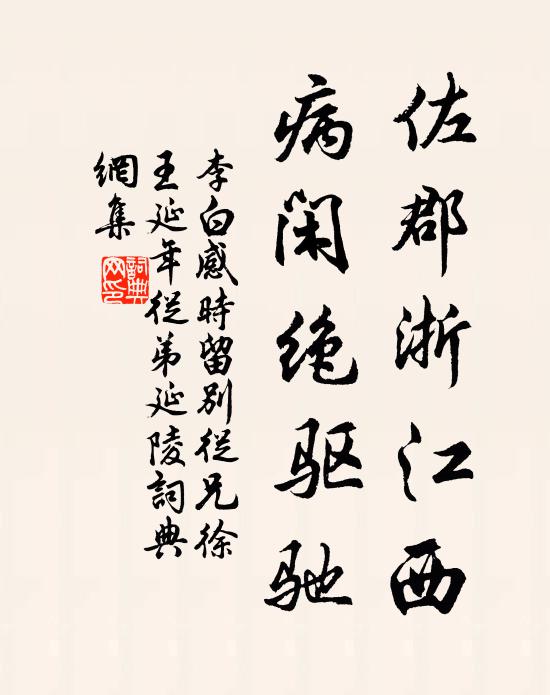 佐郡浙江西
病闲绝驱驰
李白感時留別從兄徐
王延年從弟延陵詞典
網集
詞典
网印